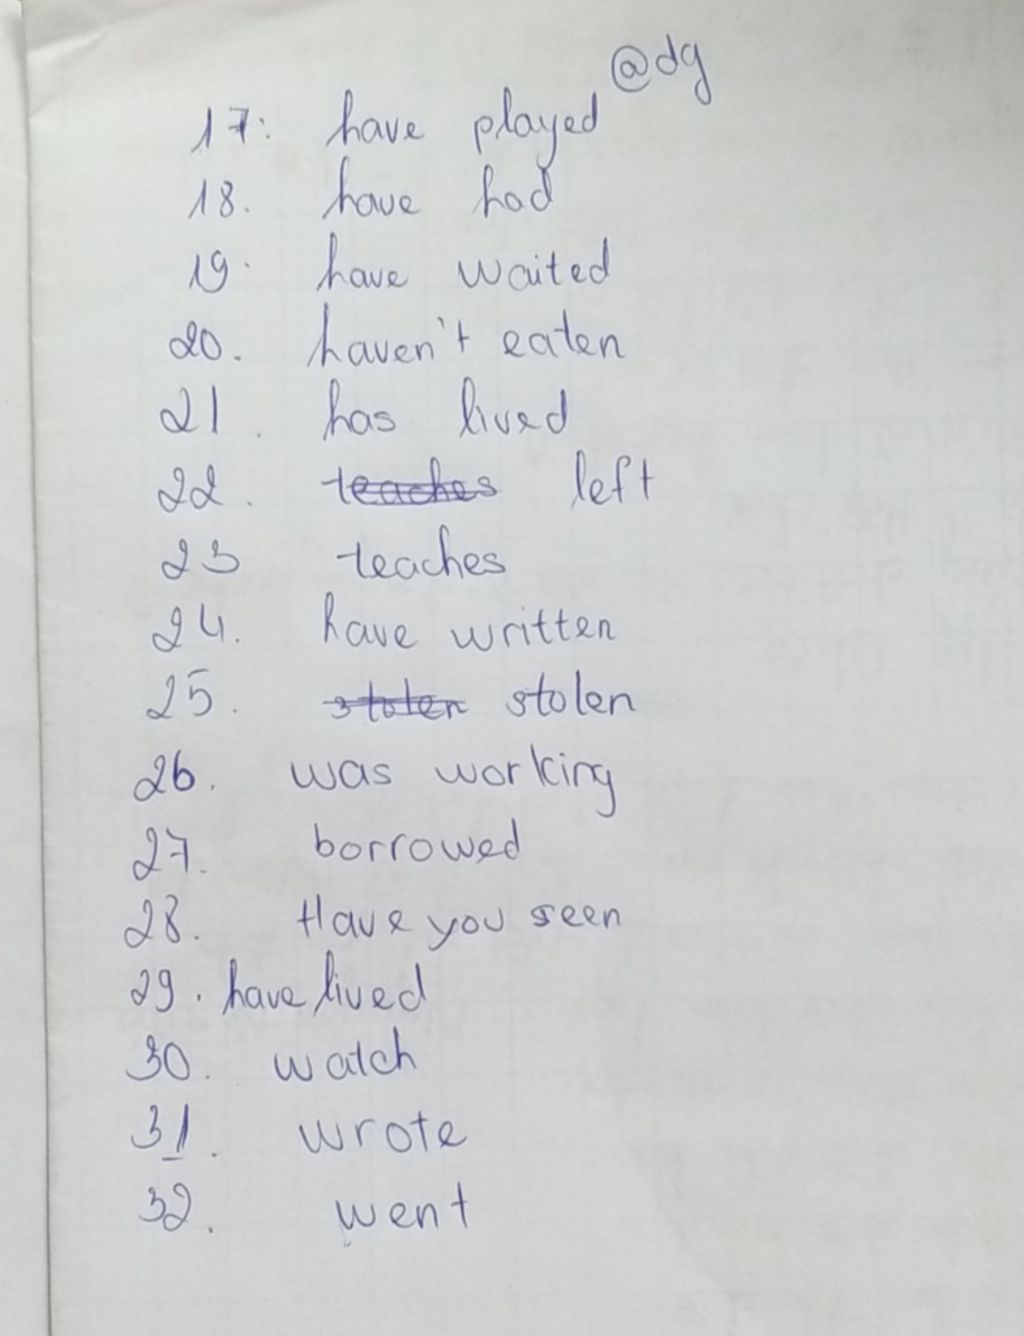 @dg
17. have played
18. have had
19. have waited
20. haven't eaten
21. has lived
22. teaches left
23 teaches
24. have written
25. stolen stolen
26. was working
27. borrowed
28. Have you seen
29. have lived
30. watch
31. wrote
32. went